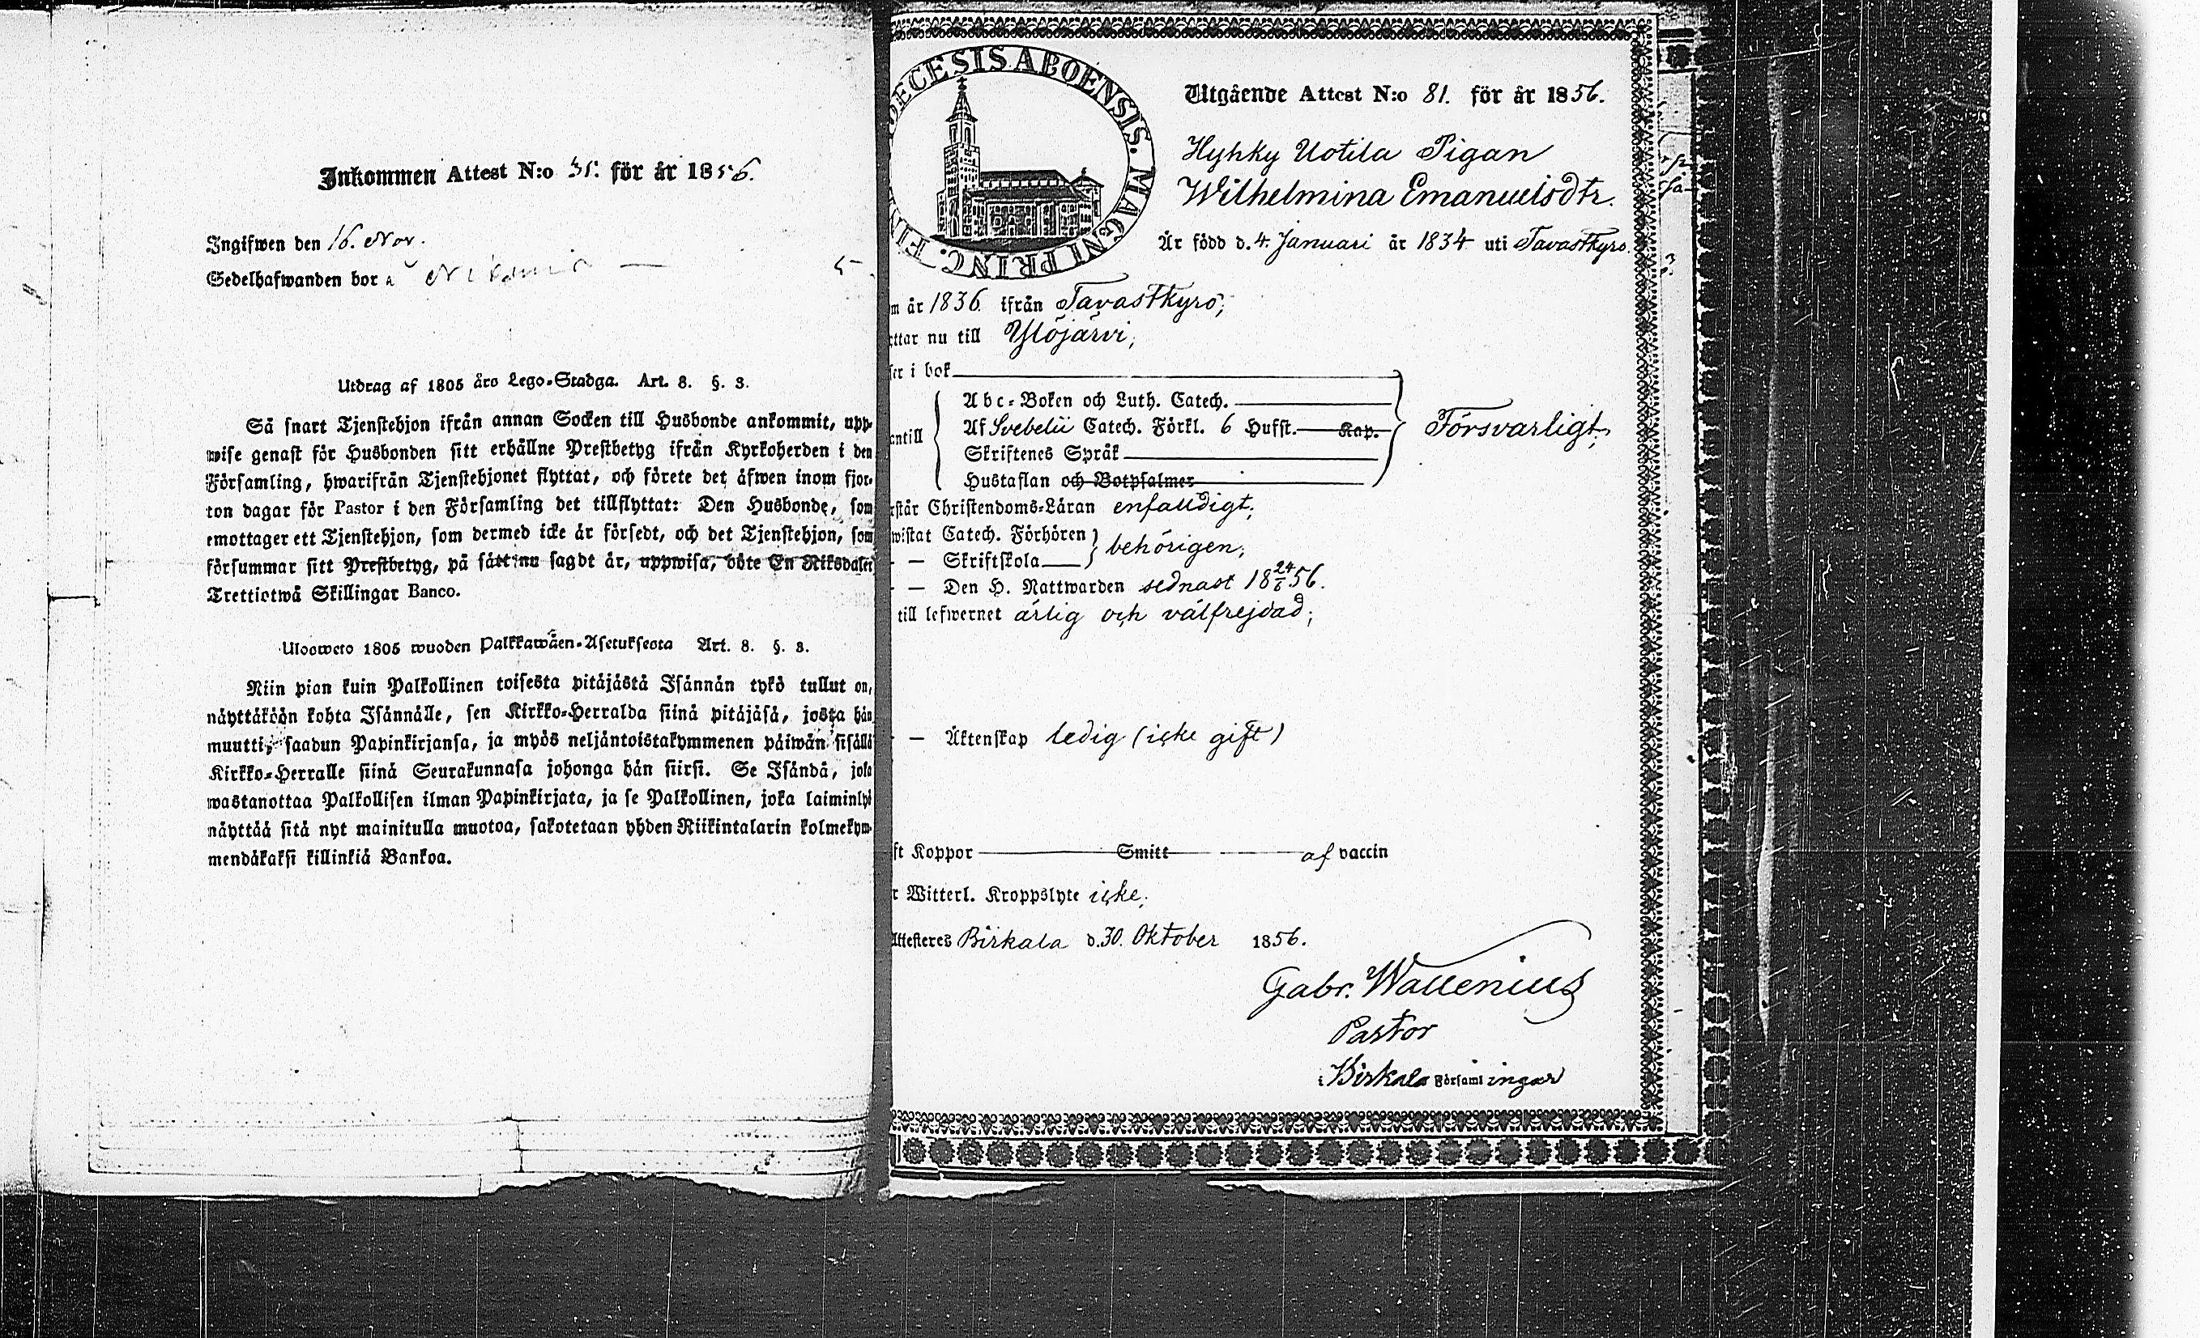 Inkommen Attest N:o 35. för år 1856.
Ingifwen den 16. Nov.
Sedelhafwanden bor å
Utdrag af 1805 års Lego-Stadga. Art. 8. §. 3.
Så snart Tjenstehjon ifrån annan Socken till Husbonde ankommit, upp-
wise genast för Husbonden sitt erhållne Prestbetyg ifrån Kyrkoherden i den
Församling, hwarifrån Tjenstehjonet flyttat, och förete det äfwen inom fjor-
ton dagar för Pastor i den Församling det tillflyttat: Den Husbonde, som
emottager ett Tjenstehjon, som dermed icke är försedt, och det Tjenstehjon, som
försummar sitt Prestbetyg, på sätt nu sagdt är, uppwisa, böte En Riksdaler
Trettiotwå Skillingar Banco.
Ulosweto 1805 wuoden Palkkawäen-Asetuksesta Art. 8. §. 3.
Niin pian kuin Palkollinen toisesta pitäjästä Isännän tykö tullut on,
näyttäköön kohta Isännälle, sen Kirkko-Herralda siinä pitäjäsä, josta hän
muutti, saadun Papinkirjansa, ja myös neljäntoistakymmenen päiwän sisällä
Kirkko-Herralle siinä Seurakunnasa johonga hän siirsi. Se Isändä, joka
wastanottaa Palkollisen ilman Papinkirjata, ja se Palkollinen, joka laiminlyö
näyttää sitä nyt mainitulla muotoa, sakotetaan yhden Riikintalarin kolmekym-
mendäkaksi killinkiä Bankoa.
ECESIS ABOENSIS. MAGNI PRINC. FIN
Utgående Attest N:o 81. för år 1856.
Hyhky Uotila Pigan
Wilhelmina Emanuelsdtr.
Är född d. 4. Januari år 1834 uti Tavastkyro.
m år 1836. ifrån Tavastkyro;
ttar nu till Ylöjärvi;
ser i bok
Abc-Boken och Luth. Catech.
antill Af Svebelii Catech. Förkl. 6 Hufst. Kap. Försvarligt;
Skriftenes Språk
Hustaflan och Botpsalmer
rstår Christendoms-Läran enfaldigt;
wistat Catech. Förhören behörigen;
— Skriftskola
— Den H. Nattwarden sednast 18 24/6 56.
till lefwernet ärlig och välfrejdad;
— Äktenskap ledig (icke gift)
ft Koppor Smitt af vaccin
r Witterl. Kroppslyte icke;
Attesteres Birkala d. 30. Oktober 1856.
Gabr. Wallenius
Pastor
i Birkala Församlingar